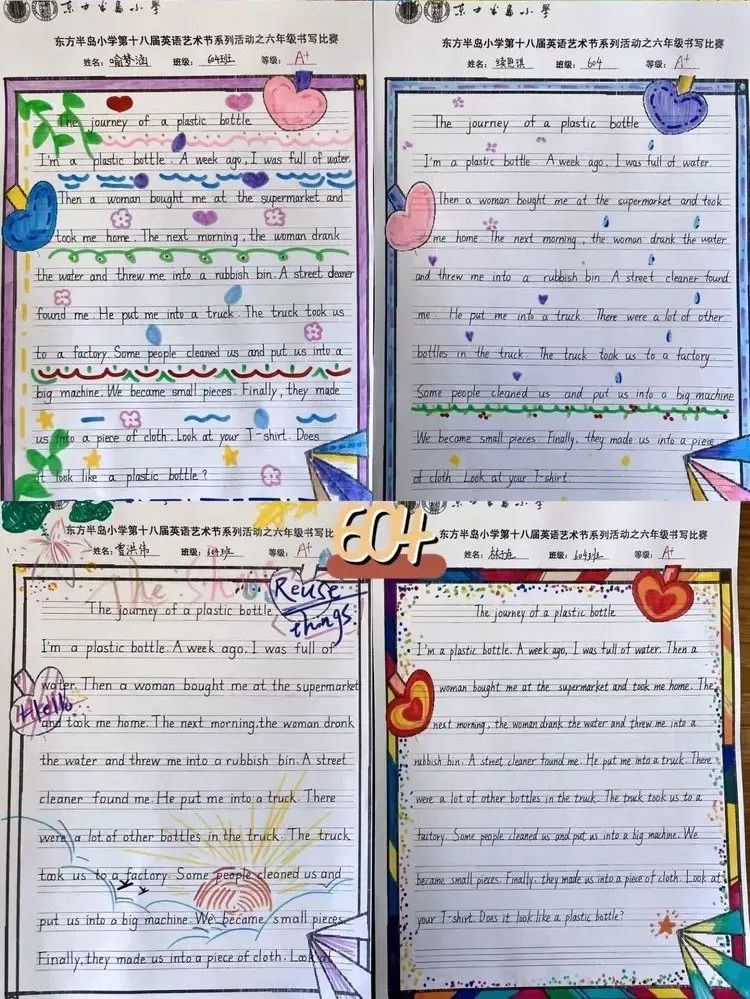 东方半岛小学
东方半岛小学第十八届英语艺术节系列活动之六年级书写比赛
姓名:喻梦涵 班级:604班 等级:A+
The journey of a plastic bottle
I'm a plastic bottle. A week ago, I was full of water.
Then a woman bought me at the supermarket and
took me home. The next morning, the woman drank
the water and threw me into a rubbish bin. A street cleaner
found me. He put me into a truck. The truck took us
to a factory. Some people cleaned us and put us into a
big machine. We became small pieces. Finally, they made
us into a piece of cloth. Look at your T-shirt. Does
it look like a plastic bottle?
东方半岛小学
东方半岛小学第十八届英语艺术节系列活动之六年级书写比赛
姓名: 班级:604 等级:A+
The journey of a plastic bottle
I'm a plastic bottle. A week ago, I was full of water.
Then a woman bought me at the supermarket and took
me home. The next morning, the woman drank the water
and threw me into a rubbish bin. A street cleaner found
me. He put me into a truck. There were a lot of other
bottles in the truck. The truck took us to a factory.
Some people cleaned us and put us into a big machine
We became small pieces. Finally, they made us into a piece
of cloth. Look at your T-shirt.
604
东方半岛小学第十八届英语艺术节系列活动之六年级书写比
姓名: 班级:604班 等级:A+
The
Reuse
things
The journey of a plastic bottle
I'm a plastic bottle. A week ago, I was full of
water. Then a woman bought me at the supermarket
Hello
and took me home. The next morning, the woman drank
the water and threw me into a rubbish bin. A street
cleaner found me. He put me into a truck. There
were a lot of other bottles in the truck. The truck
took us to a factory. Some people cleaned us and
put us into a big machine. We became small pieces.
Finally, they made us into a piece of cloth. Look at
东方半岛小学
东方半岛小学第十八届英语艺术节系列活动之六年级书写比赛
姓名: 班级:604班 等级:A+
The journey of a plastic bottle
I'm a plastic bottle. A week ago, I was full of water. Then a
woman bought me at the supermarket and took me home. The
next morning, the woman drank the water and threw me into a
rubbish bin. A street cleaner found me. He put me into a truck. There
were a lot of other bottles in the truck. The truck took us to a
factory. Some people cleaned us and put us into a big machine. We
became small pieces. Finally, they made us into a piece of cloth. Look at
your T-shirt. Does it look like a plastic bottle?